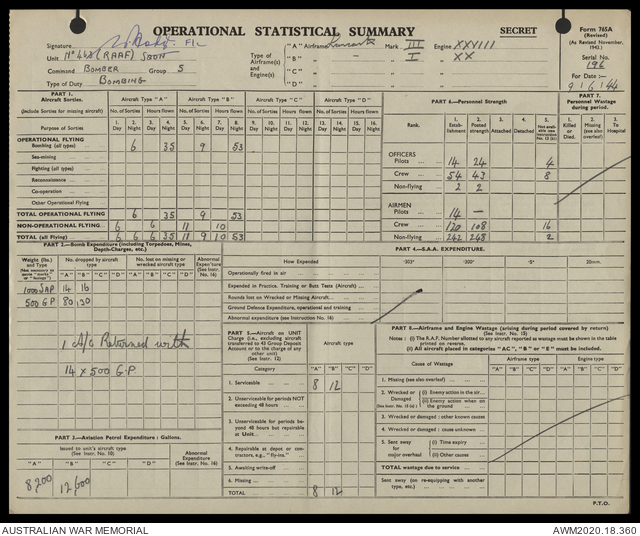 OPERATIONAL STATISTICAL SUMMARY
SECRET
Form 765A
(Revised)
(As Revised November, 1942.)
Serial No.
196
For Date :—
9/6/44
Signature F/L
Unit No 463 (RAAF) SQDN
Command BOMBER Group 5
Type of Duty BOMBING
Type of Airframe(s) and Engine(s):
"A" Airframe Lancaster Mark III Engine XXVIII
"B" " – " I " XX
"C" " " "
"D" " " "
PART 1.
Aircraft Sorties.
(Include Sorties for missing aircraft)
Aircraft Type "A" Aircraft Type "B" Aircraft Type "C" Aircraft Type "D"
No. of Sorties Hours flown No. of Sorties Hours flown No. of Sorties Hours flown No. of Sorties Hours flown
Purpose of Sorties
1. Day 2. Night 3. Day 4. Night 5. Day 6. Night 7. Day 8. Night 9. Day 10. Night 11. Day 12. Night 13. Day 14. Night 15. Day 16. Night
OPERATIONAL FLYING
Bombing (all types) 6 35 9 53
Sea-mining
Fighting (all types)
Reconnaissance
Co-operation
Other Operational Flying
TOTAL OPERATIONAL FLYING 6 35 9 53
NON-OPERATIONAL FLYING 6 6 11 10
TOTAL (all Flying) 6 6 6 35 11 9 10 53
PART 6.—Personnel Strength
Rank.
1. Establishment
2. Posted strength
3. Attached
4. Detached
5. Not available (see instruction No. 15 (b))
OFFICERS
Pilots 14 24 4
Crew 54 43 8
Non-flying 2 2
AIRMEN
Pilots 14 —
Crew 120 108 16
Non-flying 242 248 2
PART 7.
Personnel Wastage during period.
1. Killed or Died.
2. Missing (see also overleaf)
3. To Hospital
PART 2.—Bomb Expenditure (including Torpedoes, Mines, Depth-Charges, etc.)
Weight (lbs.) and Type
No. dropped by aircraft type
No. lost on missing or wrecked aircraft type
Abnormal Expenditure (See Instr. No. 16)
"A" "B" "C" "D" "A" "B" "C" "D"
1000 SAP 14 16
500 G.P 80 130
1 A/C Returned with
14 x 500 G.P
PART 3.—Aviation Petrol Expenditure : Gallons.
Issued to unit's aircraft type
(See Instr. No. 10)
Abnormal Expenditure
(See Instr. No. 16)
"A" "B" "C" "D"
8200 12600
PART 4.—S.A.A. EXPENDITURE.
How Expended
·303" ·300" ·5" 20mm.
Operationally fired in air
Expended in Practice, Training or Butt Tests (Aircraft)
Rounds lost on Wrecked or Missing Aircraft
Ground Defence Expenditure, operational and training
Abnormal expenditure (see Instruction No. 16)
PART 5.—Aircraft on UNIT Charge (i.e., excluding aircraft transferred to 43 Group Deposit Account or to the charge of any other unit)
(See Instr. 12)
Aircraft type
Category "A" "B" "C" "D"
1. Serviceable 8 12
2. Unserviceable for periods NOT exceeding 48 hours
3. Unserviceable for periods beyond 48 hours but repairable at Unit
4. Repairable at depot or contractors, e.g., "fly-ins."
5. Awaiting write-off
6. Missing
TOTAL 8 12
PART 8.—Airframe and Engine Wastage (arising during period covered by return)
(See Instruction No. 13)
Notes : (i) The R.A.F. Number allotted to any aircraft reported as wastage must be shown in the table printed on reverse.
(ii) All aircraft placed in categories "AC," "B" or "E" must be included.
Cause of Wastage
Airframe type Engine type
"A" "B" "C" "D" "A" "B" "C" "D"
1. Missing (see also overleaf)
2. Wrecked or Damaged (i) Enemy action in the air
(ii) Enemy action when on the ground
3. Wrecked or damaged : other known causes
4. Wrecked or damaged : cause unknown
5. Sent away for major overhaul (i) Time expiry
(ii) Other causes
TOTAL wastage due to service
Sent away (on re-equipping with another type, etc.)
P.T.O.
AUSTRALIAN WAR MEMORIAL
AWM2020.18.360